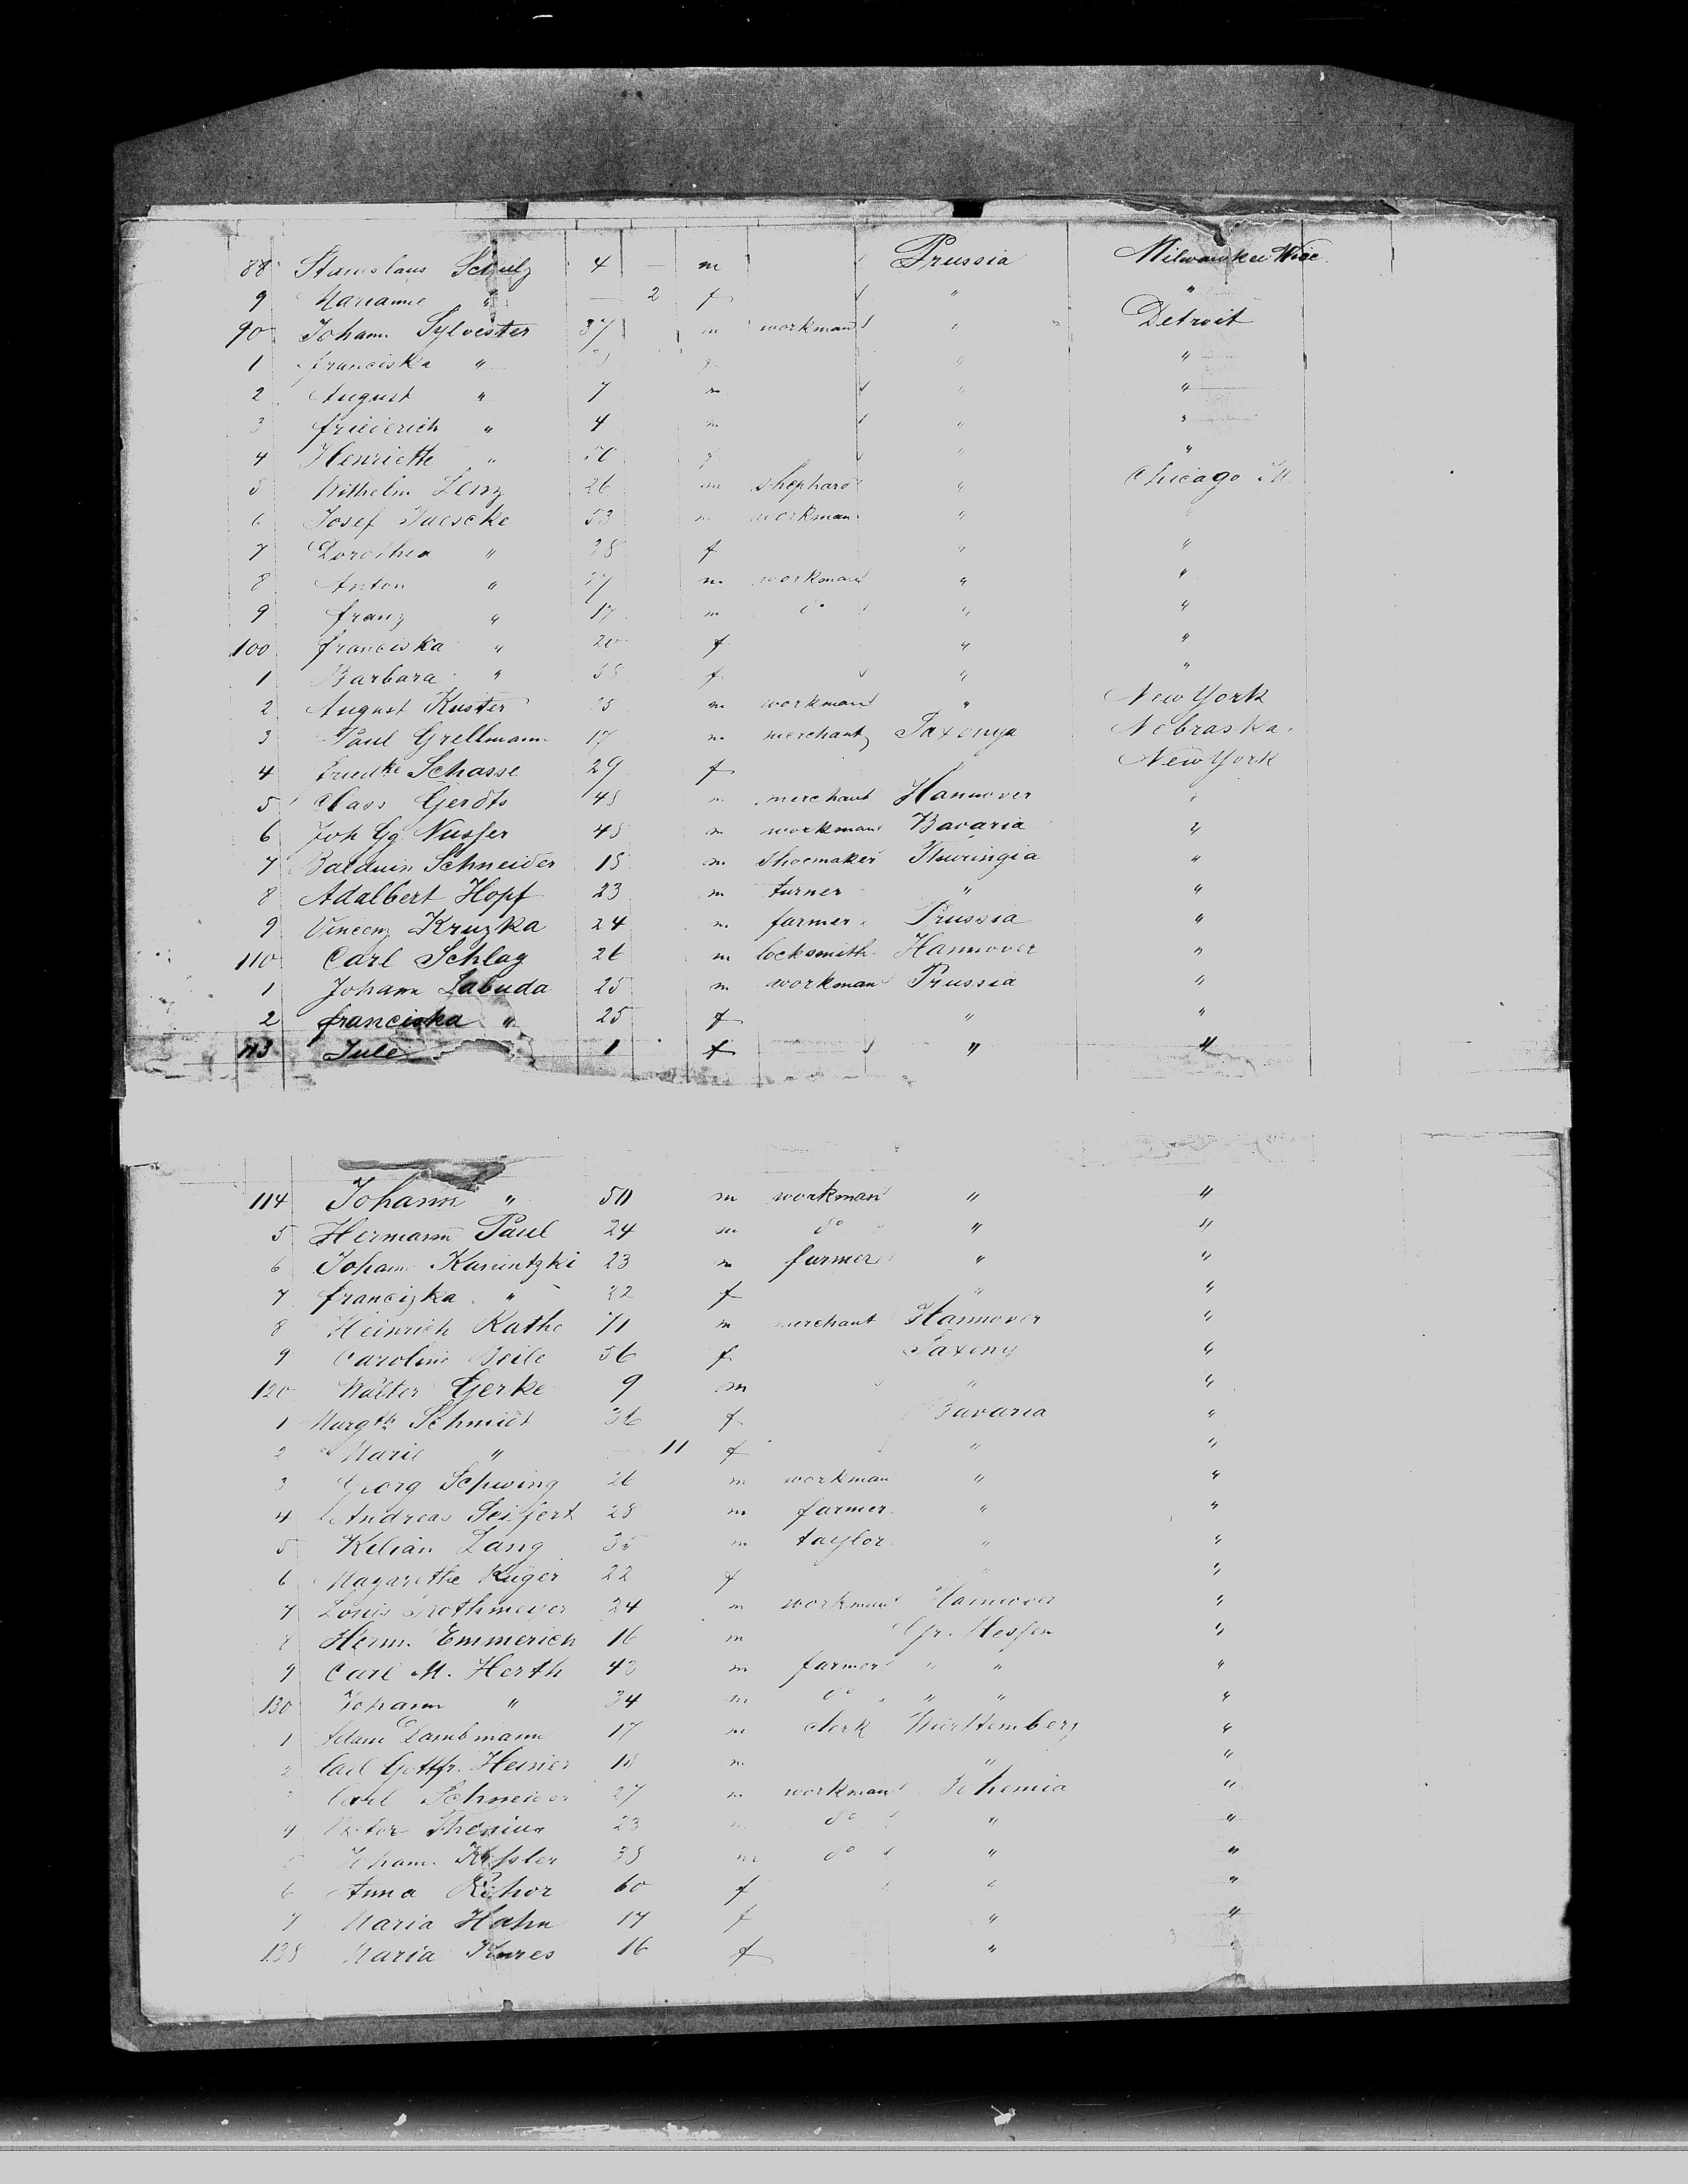 88 Stanislaus Schulz 4 — m Prussia Milwaukee Wisc.
9 Marianne " — 2 f " "
90 Johann Sylvester 37 m workman " Detroit
1 franciska " " "
2 August " 7 m " "
3 friederich " 4 m " "
4 Henriette " f " "
5 Wilhelm Lenz 26 m shephard " Chicago Ill.
6 Josef 53 m workman " "
7 Dorothea " 28 f " "
8 Anton " 27 m workman " "
9 franz " 17 m do " "
100 franciska " 20 f " "
1 Barbara " f " "
2 August Kuster m workman " New York
3 Paul Grellmann 17 m merchant Saxonya Nebraska.
4 Friedke Schasse 29 f New York
5 Claas Gerdts 48 m merchant Hannover "
6 Joh Gg. Nusser 48 m workman Bavaria "
7 Balduin Schneider 18 m Shoemaker Thuringia "
8 Adalbert Hopf 23 m turner " "
9 Vincenz Kruzka 24 m farmer Prussia "
110 Carl Schlag 26 m locksmith Hannover "
1 Johann Labuda 25 m workman Prussia "
2 franciska " 25 f " "
113 Jule 1 f " "
114 Johann " 50 m workman " "
5 Hermann Paul 24 m do " "
6 Johann 23 m farmer " "
7 francizka " 22 f " "
8 Heinrich Rathe 71 m merchant Hannover "
9 Caroline Beile 36 f Saxony "
120 Walter Gerke 9 m " "
1 Margth Schmidt 36 f Bavaria "
2 Marie " — 11 f " "
3 Georg Schwing 26 m workman " "
4 Andreas Seifert 28 m farmer " "
5 Kilian Lang 35 m taylor " "
6 Magarethe Kuger 22 f " "
7 Louis Rothmeyer 24 m workman Hannover "
8 Herm. Emmerich 16 m Gr. Hessen "
9 Carl M. Herth 43 m farmer " " "
130 Johann " 34 m do " " "
1 Adam Lambmann 17 m clerk Württemberg "
2 Carl Gottfr. Heinier 18 m " "
3 Carl Schneider 27 m workman Bohemia "
4 23 m do " "
5 Johann Kessler 38 m do " "
6 Anna Rehor 60 f " "
7 Maria Hahn 17 f " "
138 Maria Kures 16 f " "